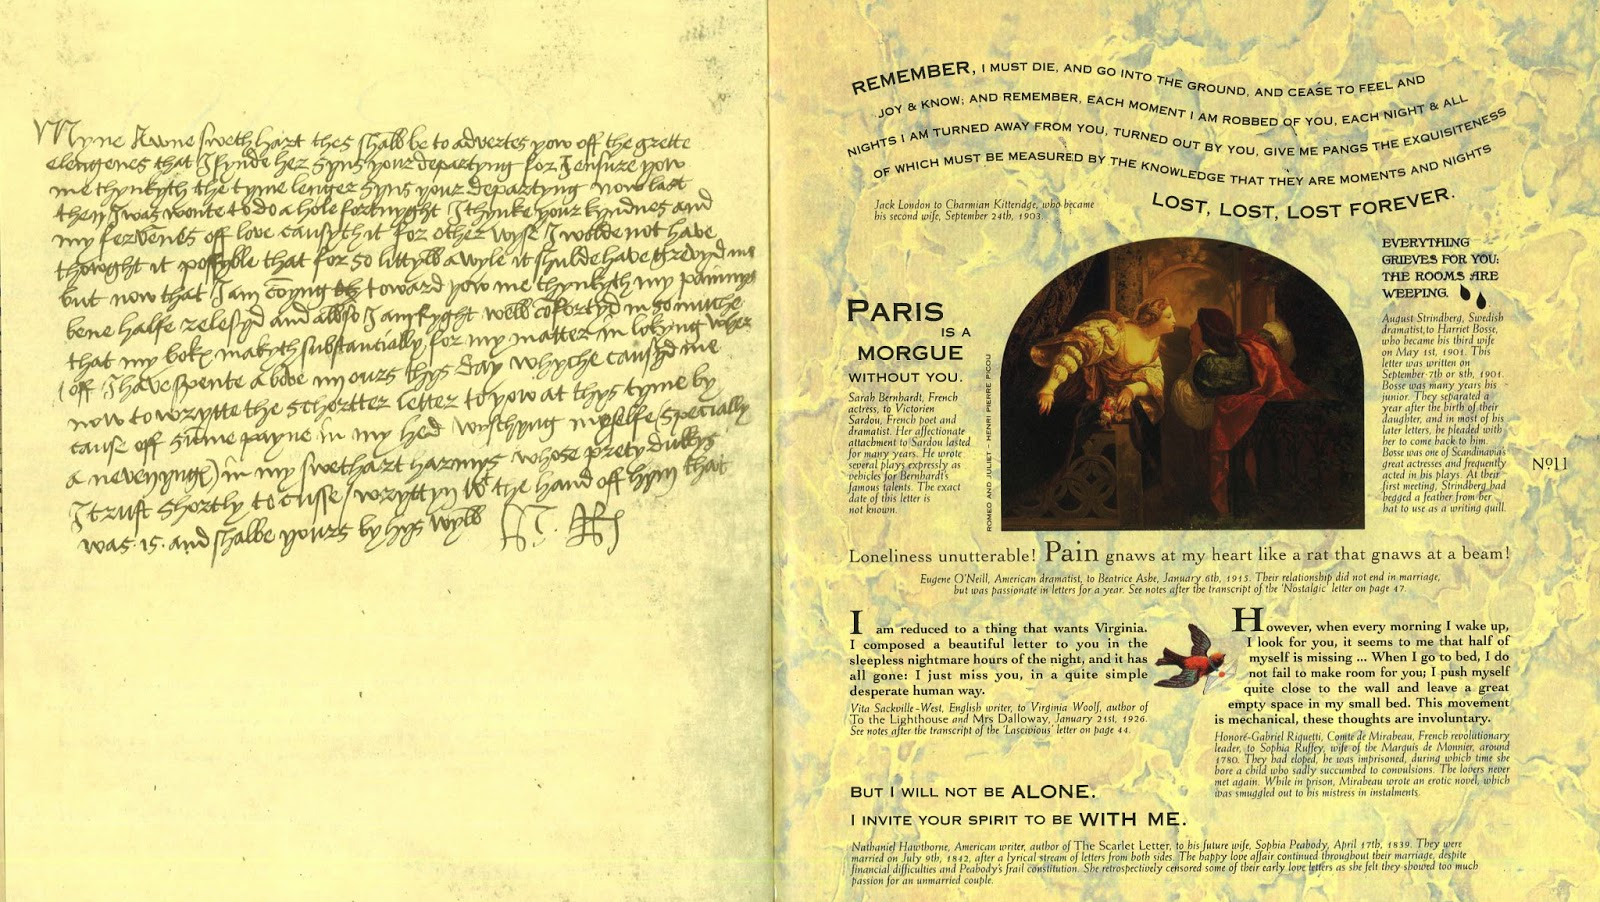 Myne Awne Sweth hart thes shall be to advertes yow off the grette
elengenes that I fynde her syns your departyng for I ensure yow
me thynkyth the tyme lenger syns your departyng now last
then I was wonte to do a hole fortnyght I thynke your kyndnes and
my fervenes off love causyth it for other wyse I wolde not have
thowght it possyble that for so littyll a wyle it shulde have grevyd me
but now that I am comyng toward yow me thynkyth my painnys
bene halfe relesyd and allso I am ryght well cofortyd in so muche
that my boke makyth substancially for my matter in lokyng wher
off I have spente above iiii ours thys day whyche causyd me
now to wrytte the schortter letter to yow at thys tyme by
cause off sume payne in my hed wyschyng myselfe (specially
a nevenynge) in my swethart harmys whose prety dukkys
I trust shortly to cusse / wryttyn wt the hand off hym that
was . is . and shalbe yours by hys wyll
REMEMBER, I MUST DIE, AND GO INTO THE GROUND, AND CEASE TO FEEL AND
JOY & KNOW; AND REMEMBER, EACH MOMENT I AM ROBBED OF YOU, EACH NIGHT & ALL
NIGHTS I AM TURNED AWAY FROM YOU, TURNED OUT BY YOU, GIVE ME PANGS THE EXQUISITENESS
OF WHICH MUST BE MEASURED BY THE KNOWLEDGE THAT THEY ARE MOMENTS AND NIGHTS
LOST, LOST, LOST FOREVER.
Jack London to Charmian Kitteridge, who became
his second wife, September 24th, 1903.
PARIS
IS A
MORGUE
WITHOUT YOU.
Sarah Bernhardt, French
actress, to Victorien
Sardou, French poet and
dramatist. Her affectionate
attachment to Sardou lasted
for many years. He wrote
several plays expressly as
vehicles for Bernhardt's
famous talents. The exact
date of this letter is
not known.
ROMEO AND JULIET - HENRI PIERRE PICOU
EVERYTHING
GRIEVES FOR YOU:
THE ROOMS ARE
WEEPING.
August Strindberg, Swedish
dramatist, to Harriet Bosse,
who became his third wife
on May 1st, 1901. This
letter was written on
September 7th or 8th, 1901.
Bosse was many years his
junior. They separated a
year after the birth of their
daughter, and in most of his
later letters, he pleaded with
her to come back to him.
Bosse was one of Scandinavia's
great actresses and frequently
acted in his plays. At their
first meeting, Strindberg had
begged a feather from her
hat to use as a writing quill.
Nº11
Loneliness unutterable! Pain gnaws at my heart like a rat that gnaws at a beam!
Eugene O'Neill, American dramatist, to Beatrice Ashe, January 6th, 1915. Their relationship did not end in marriage,
but was passionate in letters for a year. See notes after the transcript of the 'Nostalgic' letter on page 47.
I am reduced to a thing that wants Virginia.
I composed a beautiful letter to you in the
sleepless nightmare hours of the night, and it has
all gone: I just miss you, in a quite simple
desperate human way.
Vita Sackville-West, English writer, to Virginia Woolf, author of
To the Lighthouse and Mrs Dalloway, January 21st, 1926.
See notes after the transcript of the 'Lascivious' letter on page 44.
However, when every morning I wake up,
I look for you, it seems to me that half of
myself is missing ... When I go to bed, I do
not fail to make room for you; I push myself
quite close to the wall and leave a great
empty space in my small bed. This movement
is mechanical, these thoughts are involuntary.
Honoré-Gabriel Riquetti, Comte de Mirabeau, French revolutionary
leader, to Sophia Ruffey, wife of the Marquis de Monnier, around
1780. They had eloped, he was imprisoned, during which time she
bore a child who sadly succumbed to convulsions. The lovers never
met again. While in prison, Mirabeau wrote an erotic novel, which
was smuggled out to his mistress in instalments.
BUT I WILL NOT BE ALONE.
I INVITE YOUR SPIRIT TO BE WITH ME.
Nathaniel Hawthorne, American writer, author of The Scarlet Letter, to his future wife, Sophia Peabody, April 17th, 1839. They were
married on July 9th, 1842, after a lyrical stream of letters from both sides. The happy love affair continued throughout their marriage, despite
financial difficulties and Peabody's frail constitution. She retrospectively censored some of their early love letters as she felt they showed too much
passion for an unmarried couple.